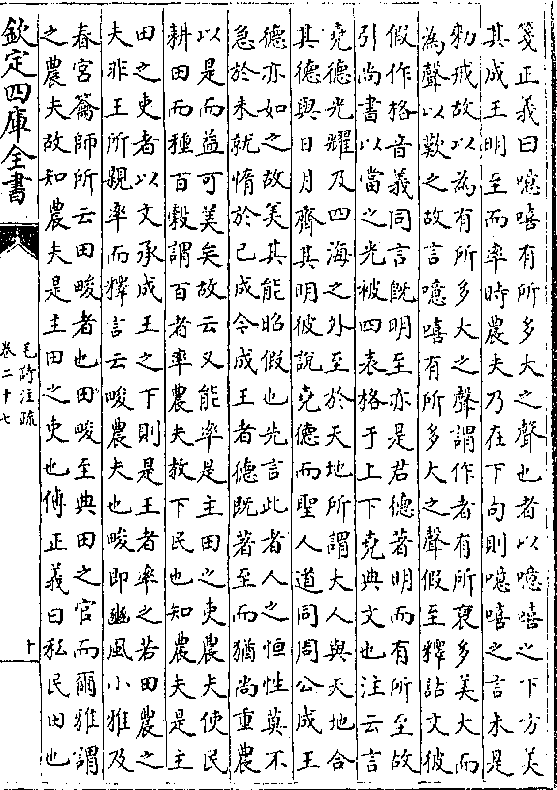 箋正義曰噫嘻有所多大之聲也者以噫嘻之下方美
其成王明至而率時農夫乃在下句則噫嘻之言未是
勑戒故以為有所多大之聲謂作者有所褒多美大而
為聲以歎之故言噫嘻有所多大之聲假至釋詁文彼
假作格音義同言既明至亦是君德著明而有所至故
引尚書以當之光被四表格于上下堯典文也注云言
堯德光耀及四海之外至於天地所謂大人與天地合
其德與日月齊其明彼說堯德而聖人道同周公成王
德亦如之故美其能昭假也先言此者人之恒性莫不
急於未就惰於已成今成王者德既著至而猶尚重農
以是而益可美矣故云又能率是主田之吏農夫使民
耕田而種百穀謂百者率農夫教下民也知農夫是主
田之吏者以文承成王之下則是王者率之若田農之
夫非王所親率而釋言云畯農夫也畯即豳風小雅及
春官籥師所云田畯者也田畯至典田之官而爾雅謂
之農夫故知農夫是主田之吏也傳正義曰私民田也
欽定四庫全書
毛詩注疏
卷二十七
十